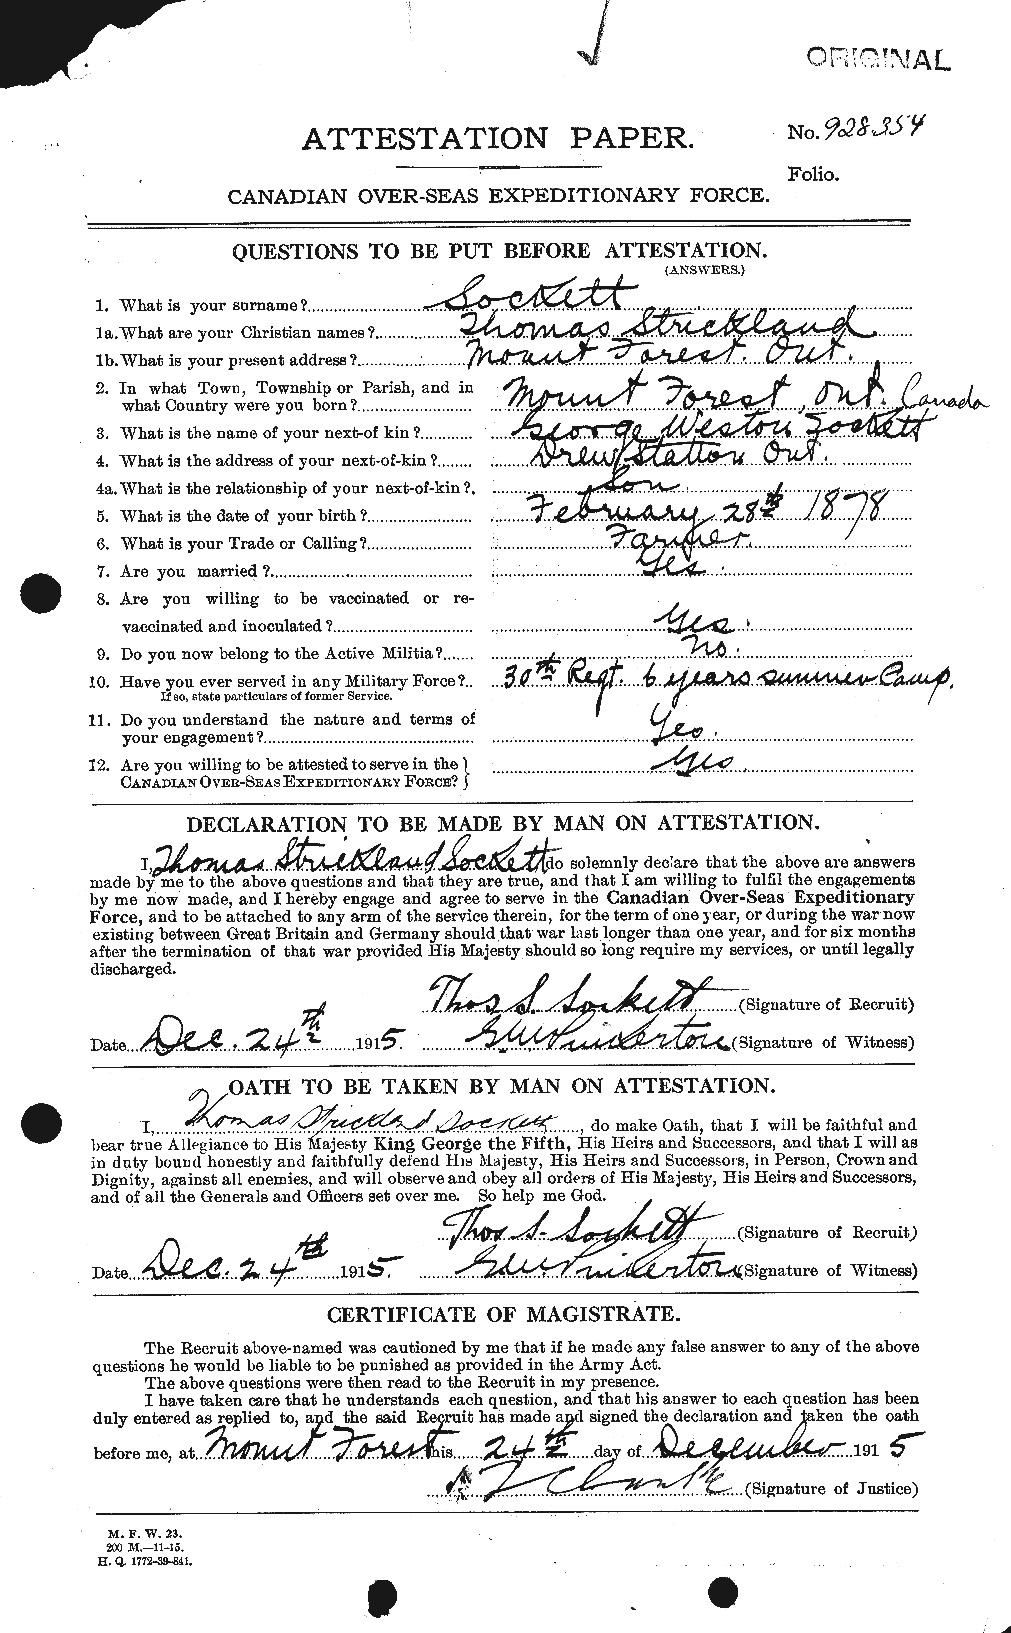 ORIGINAL
No. 928354
ATTESTATION PAPER.
Folio.
CANADIAN OVER-SEAS EXPEDITIONARY FORCE.
QUESTIONS TO BE PUT BEFORE ATTESTATION.
(ANSWERS.)
1. What is your surname? Sockett
1a. What are your Christian names? Thomas Strickland
1b. What is your present address? Mount Forest. Ont.
2. In what Town, Township or Parish, and in
what Country were you born? Mount Forest, Ont. Canada
3. What is the name of your next-of kin? George Weston Sockett
4. What is the address of your next-of-kin? Drew Station Ont.
4a. What is the relationship of your next-of-kin? Son
5. What is the date of your birth? February 28th 1878
6. What is your Trade or Calling? Farmer.
7. Are you married? Yes.
8. Are you willing to be vaccinated or re-
vaccinated and inoculated? Yes.
9. Do you now belong to the Active Militia? No.
10. Have you ever served in any Military Force? 30th Regt. 6 years summer Camp.
If so, state particulars of former Service.
11. Do you understand the nature and terms of
your engagement? Yes.
12. Are you willing to be attested to serve in the
CANADIAN OVER-SEAS EXPEDITIONARY FORCE? Yes.
DECLARATION TO BE MADE BY MAN ON ATTESTATION.
I, Thomas Strickland Sockett do solemnly declare that the above are answers
made by me to the above questions and that they are true, and that I am willing to fulfil the engagements
by me now made, and I hereby engage and agree to serve in the Canadian Over-Seas Expeditionary
Force, and to be attached to any arm of the service therein, for the term of one year, or during the war now
existing between Great Britain and Germany should that war last longer than one year, and for six months
after the termination of that war provided His Majesty should so long require my services, or until legally
discharged.
Thos S. Sockett (Signature of Recruit)
Date Dec. 24th 1915. Pinkerton (Signature of Witness)
OATH TO BE TAKEN BY MAN ON ATTESTATION.
I, Thomas Strickland Sockett, do make Oath, that I will be faithful and
bear true Allegiance to His Majesty King George the Fifth, His Heirs and Successors, and that I will as
in duty bound honestly and faithfully defend His Majesty, His Heirs and Successors, in Person, Crown and
Dignity, against all enemies, and will observe and obey all orders of His Majesty, His Heirs and Successors,
and of all the Generals and Officers set over me. So help me God.
Thos S. Sockett (Signature of Recruit)
Date Dec. 24th 1915. Pinkerton (Signature of Witness)
CERTIFICATE OF MAGISTRATE.
The Recruit above-named was cautioned by me that if he made any false answer to any of the above
questions he would be liable to be punished as provided in the Army Act.
The above questions were then read to the Recruit in my presence.
I have taken care that he understands each question, and that his answer to each question has been
duly entered as replied to, and the said Recruit has made and signed the declaration and taken the oath
before me, at Mount Forest this 24th day of December 1915
(Signature of Justice)
M. F. W. 23.
200 M.—11-15.
H. Q. 1772-39-841.